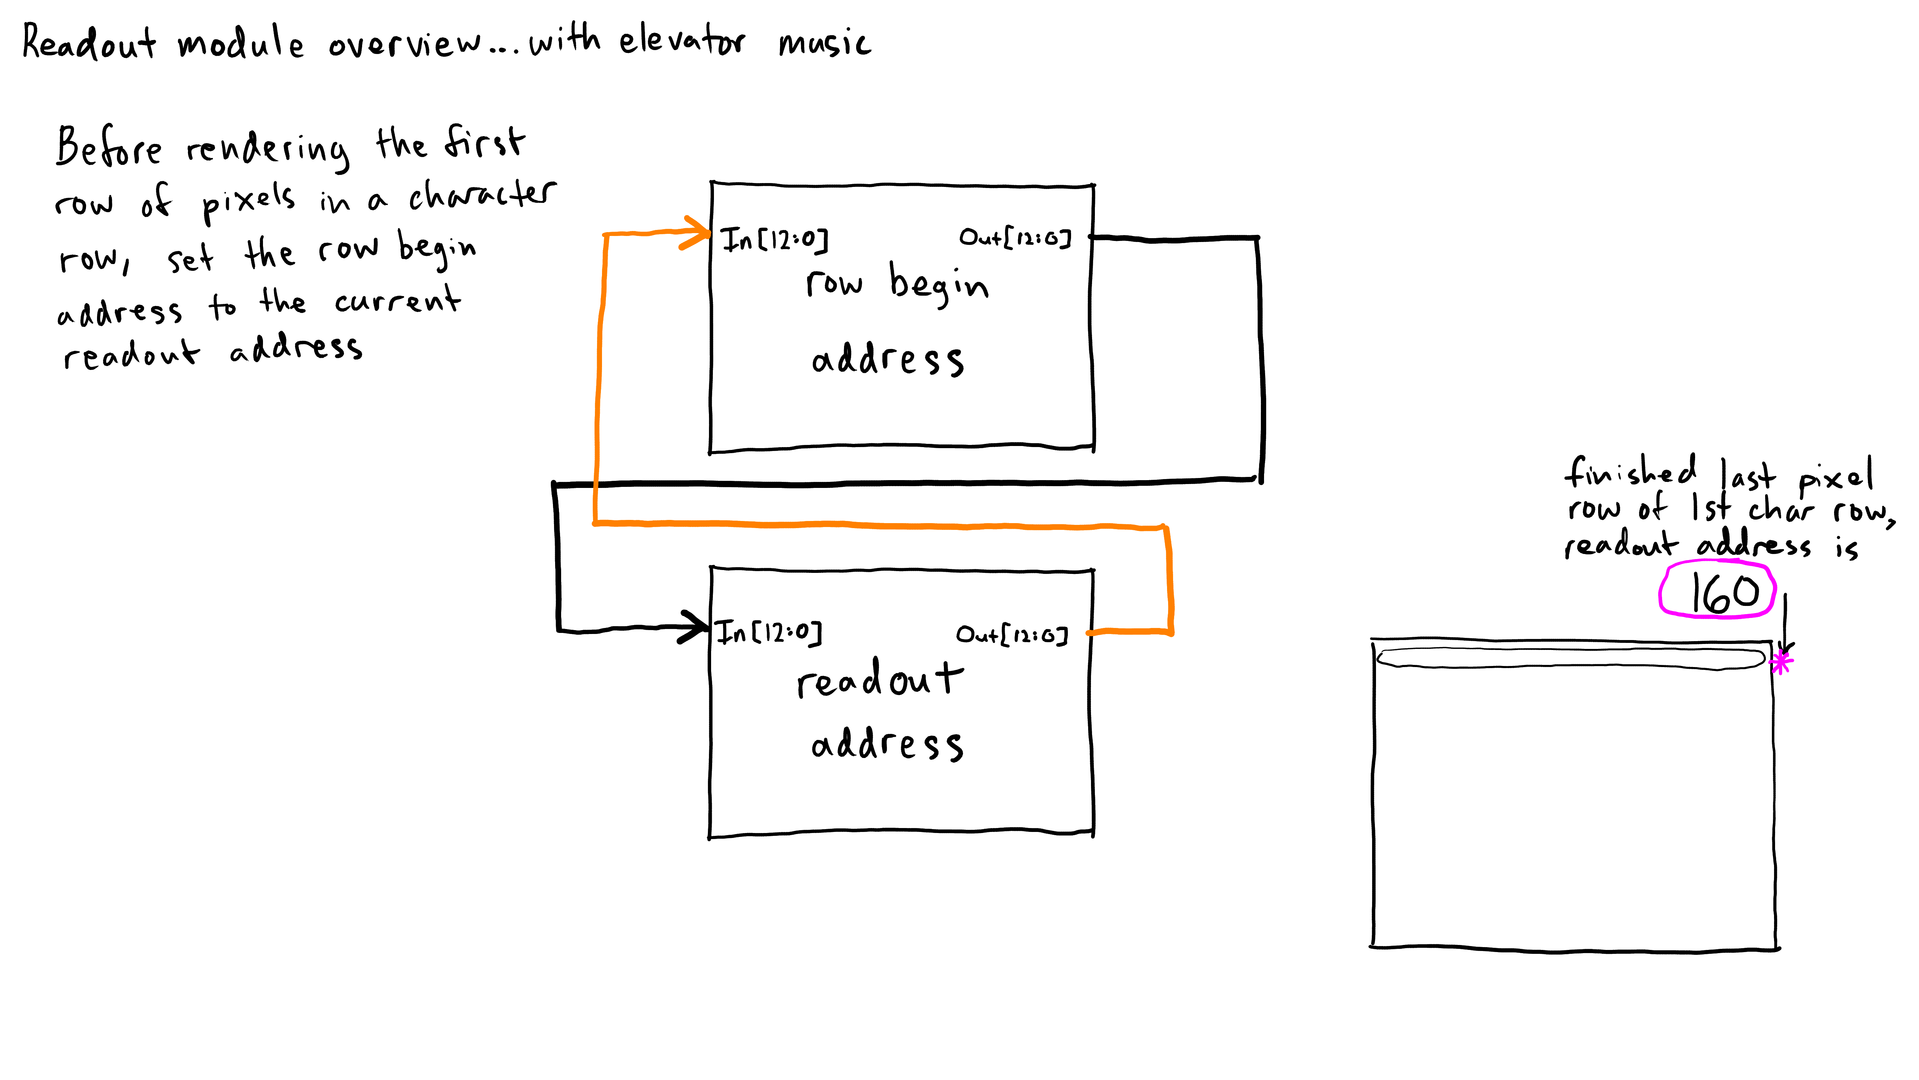 Readout module overview... with elevator music
Before rendering the first
row of pixels in a character
row, set the row begin
address to the current
readout address
In[12:0] Out[12:0]
row begin
address
In[12:0] Out[12:0]
readout
address
finished last pixel
row of 1st char row,
readout address is
160